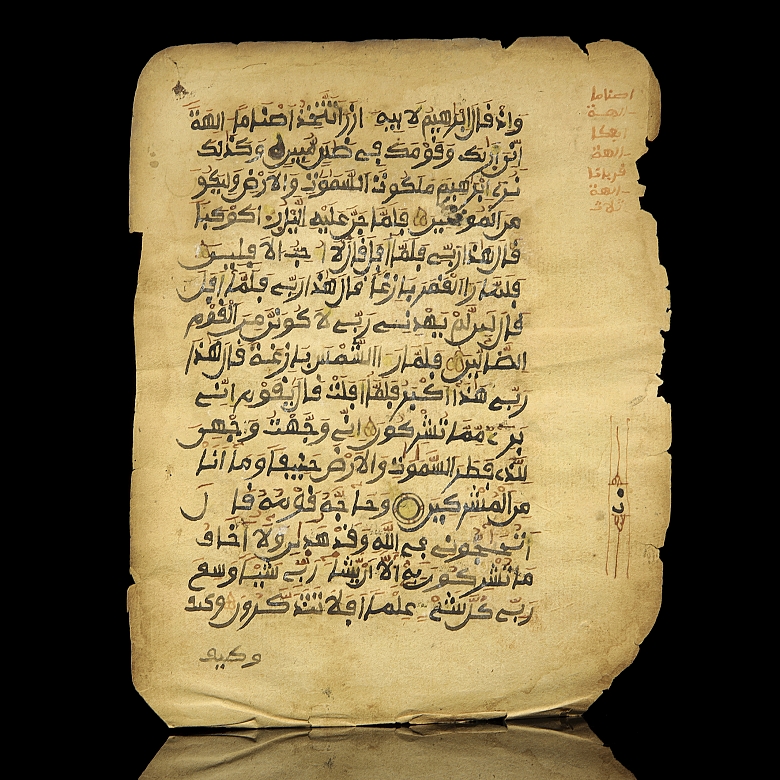 واذ قال ابرهيم لابيه ازر اتتخذ اصناما الهة
اني اريك وقومك في ضلل مبين وكذلك
نري ابرهيم ملكوت السموت والارض وليكو
من الموقنين فلما جن عليه اليل را كوكبا
قال هذا ربي فلما افل قال لا احب الافلين
فلما را القمر بازغا قال هذا ربي فلما افل
قال لين لم يهدني ربي لاكونن من القوم
الضالين فلما را الشمس بازغة قال هذا
ربي هذا اكبر فلما افلت قال يقوم اني
بريء مما تشركون اني وجهت وجهي
للذي فطر السموت والارض حنيفا وما انا
من المشركين وحاجه قومه قا ل
اتحجوني في الله وقد هدين ولا اخاف
ما تشركون به الا ان يشا ربي شيا وسع
ربي كل شيء علما افلا تتذكرون وكيف
وكيف
اصناما
الهة
الهكا
الهة
قربانا
الهة
ثلاث